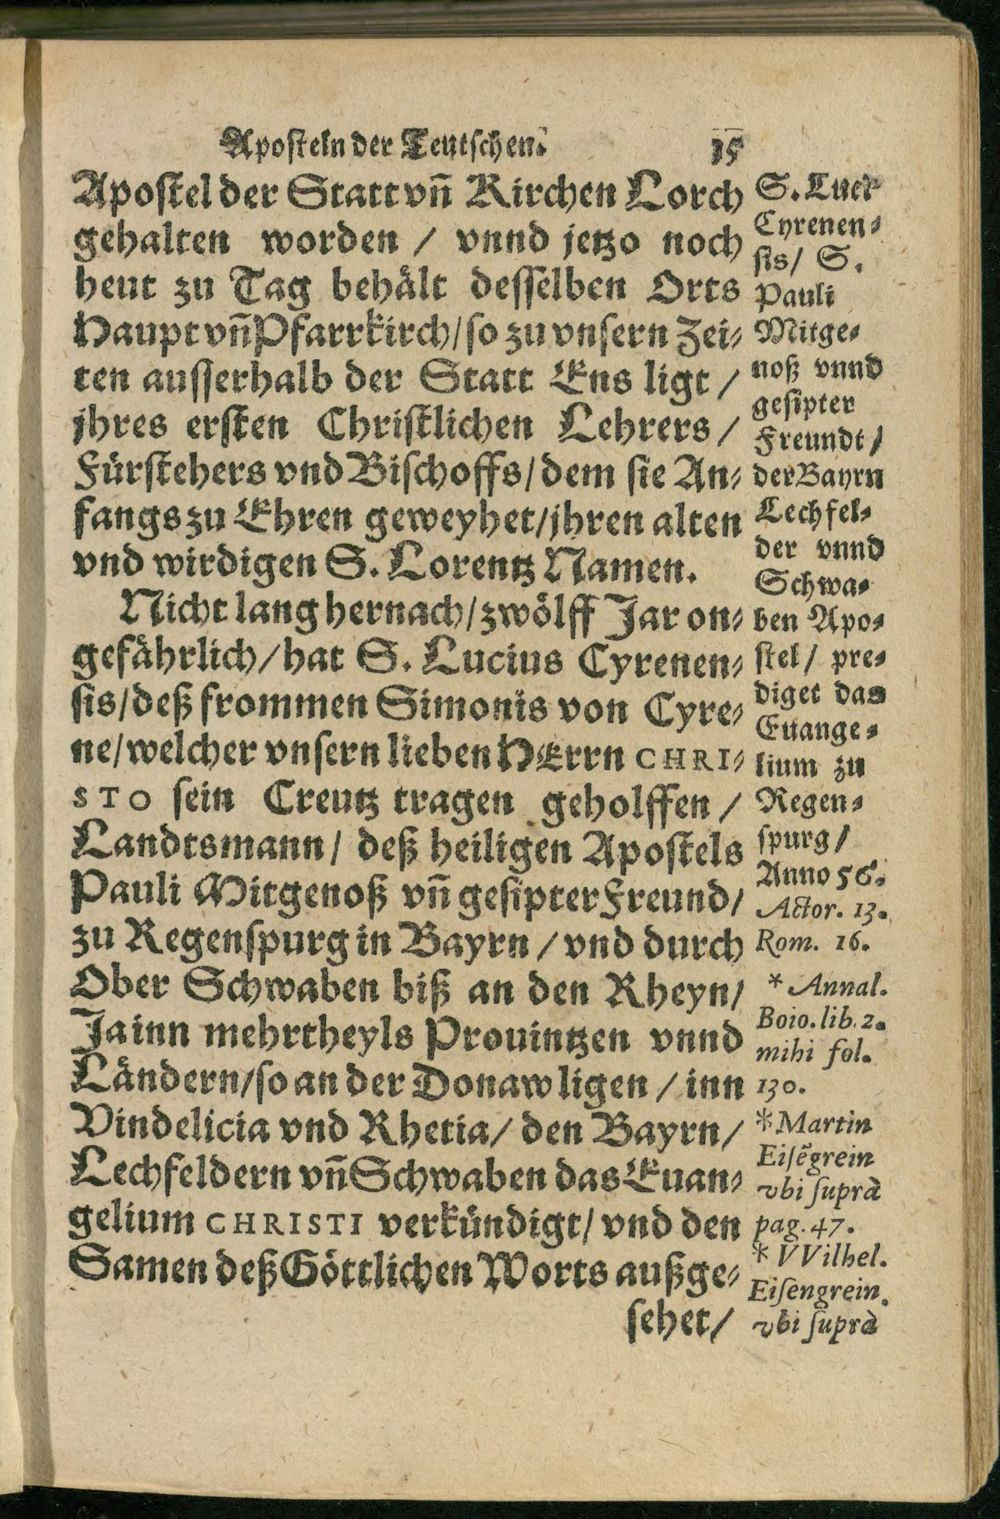 Aposteln der Teutschen. 15
Apostel der Statt vñ Kirchen Lorch
gehalten worden / vnnd jetzo noch
heut zu Tag behält desselben Orts
Haupt vñ Pfarrkirch/ so zu vnsern Zei⸗
ten ausserhalb der Statt Ens ligt /
jhres ersten Christlichen Lehrers /
Fürstehers vnd Bischoffs/ dem sie An⸗
fangs zu Ehren geweyhet/ jhren alten
vnd wirdigen S. Lorentz Namen.
Nicht lang hernach/ zwölff Jar on⸗
gefährlich/ hat S. Lucius Cyrenen⸗
sis/ deß frommen Simonis von Cyre⸗
ne/ welcher vnsern lieben HErrn CHRI⸗
STO sein Creutz tragen geholffen /
Landtsmann/ deß heiligen Apostels
Pauli Mitgenoß vñ gesipter Freund/
zu Regenspurg in Bayrn / vnd durch
Ober Schwaben biß an den Rheyn/
Ja inn mehrtheyls Prouintzen vnnd
Ländern/ so an der Donaw ligen / inn
Vindelicia vnd Rhetia/ den Bayrn/
Lechfeldern vñ Schwaben das Euan⸗
gelium CHRISTI verkündigt/ vnd den
Samen deß Göttlichen Worts außge⸗
sehet/
S. Luci⸗
Cyrenen⸗
sis/ S.
Pauli
Mitge⸗
noß vnnd
gesipter
Freundt /
der Bayrn
Lechfel⸗
der vnnd
Schwa⸗
ben Apo⸗
stel/ pre⸗
diget das
Euange⸗
lium zu
Regen⸗
spurg/
Anno 56.
Actor. 13.
Rom. 16.
* Annal.
Boio. lib. 2.
mihi fol.
130.
* Martin
Eisẽgrein
vbi suprà
pag. 47.
* VVilhel.
Eisengrein.
vbi suprà